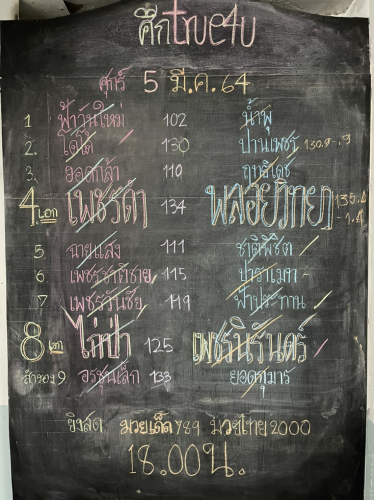 ศึกtrue4u
ศุกร์ 5 มี.ค.64
1 ฟ้าวันใหม่ 102 น้ำพุ
2. โตโต้ 130 ปานเพชร 130.9-.9
3. 110 ฤทธิเดช
4 เอก เพชรดำ 134 พลอยวิทยา 135.4 -1.4
5 ฉายแสง 111 ชาติพิชิต
6 เพชรชาติชาย 115
7 เพชรวันชัย 119 ฟ้าประทาน
8 เอก ไก่ป่า 125 เพชรนิรันดร์
สำรอง 9 อรชุนเล็ก 133 ยอดกุมาร
ยิงสด มวยเด็ด789 มวยไทย2000
18.00น.